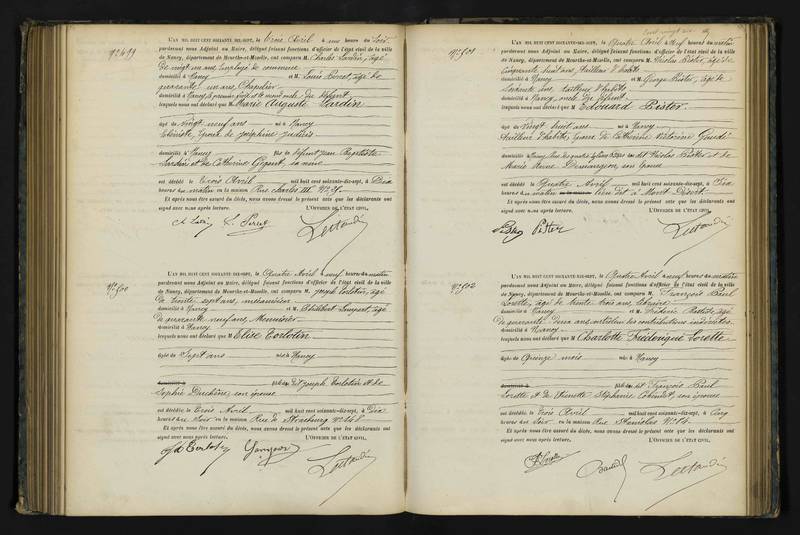 N° 499
L'AN MIL HUIT CENT SOIXANTE-DIX-SEPT, le trois Avril à une heure du soir
pardevant nous Adjoint au Maire, délégué faisant fonctions d'officier de l'état civil de la ville
de Nancy, département de Meurthe-et-Moselle, ont comparu M. Charles Lardin, âgé
de vingt un ans, Employé de commerce
domicilié à Nancy et M. Louis Perret, âgé de
quarante un ans, Chapelier
domicilié à Nancy, le premier frère et le second ami du défunt
lesquels nous ont déclaré que M. Marie Auguste Lardin
âgé de vingt neuf ans né à Nancy
Ebéniste, époux de Joséphine
domicilié à Nancy fils de défunt Jean Baptiste
Lardin et de Catherine Gegout, sa mère
est décédé le trois Avril mil huit cent soixante-dix-sept, à Dix
heures du matin en la maison Rue Charles III, N°
Et après nous être assuré du décès, nous avons dressé le présent acte que les déclarants ont
signé avec nous après lecture. L'OFFICIER DE L'ÉTAT CIVIL,
N° 500
L'AN MIL HUIT CENT SOIXANTE-DIX-SEPT, le Quatre Avril à neuf heures du matin
pardevant nous Adjoint au Maire, délégué faisant fonctions d'officier de l'état civil de la ville
de Nancy, département de Meurthe-et-Moselle, ont comparu M. Joseph Torlotin, âgé
de trente sept ans, mécanicien
domicilié à Nancy et M. Philibert, âgé
de quarante neuf ans, Menuisier
domicilié à Nancy
lesquels nous ont déclaré que M Elise Torlotin
âgée de Sept ans née à Nancy
domicilié à fille de dit Joseph Torlotin et de
Sophie Duchêne, son épouse
est décédée le trois Avril mil huit cent soixante-dix-sept, à Dix
heures du soir en la maison Rue de Strasbourg N° 148
Et après nous être assuré du décès, nous avons dressé le présent acte que les déclarants ont
signé avec nous après lecture. L'OFFICIER DE L'ÉTAT CIVIL,
N° 501
L'AN MIL HUIT CENT SOIXANTE-DIX-SEPT, le Quatre Avril à neuf heures du matin
pardevant nous Adjoint au Maire, délégué faisant fonctions d'officier de l'état civil de la ville
de Nancy, département de Meurthe-et-Moselle, ont comparu M. Nicolas Pister, âgé de
cinquante huit ans, tailleur d'habits
domicilié à Nancy et M. George Pister, âgé de
soixante ans, tailleur d'habits
domicilié à Nancy, oncle du défunt
lesquels nous ont déclaré que M. Edouard Pister
âgé de Vingt huit ans né à Nancy
tailleur d'habits, époux de Catherine Victorine
domicilié à Nancy, fils de dit Nicolas Pister et de
Marie Anne Demangeon, son épouse
est décédé le Quatre Avril mil huit cent soixante-dix-sept, à Dix
heures du matin en la maison
Et après nous être assuré du décès, nous avons dressé le présent acte que les déclarants ont
signé avec nous après lecture. L'OFFICIER DE L'ÉTAT CIVIL,
Pister
N° 502
L'AN MIL HUIT CENT SOIXANTE-DIX-SEPT, le Quatre Avril à neuf heures du matin
pardevant nous Adjoint au Maire, délégué faisant fonctions d'officier de l'état civil de la ville
de Nancy, département de Meurthe-et-Moselle, ont comparu M. François Paul
Lorette, âgé de trente trois ans, libraire
domicilié à Nancy et M. Frédéric Battiste, âgé
de quarante deux ans, des contributions indirectes
domicilié à Nancy
lesquels nous ont déclaré que M Charlotte Frédérique Lorette
âgée de Quinze mois née à Nancy
domicilié à fille de dit François Paul
Lorette et de Pierrette Stéphanie, son épouse
est décédée le trois Avril mil huit cent soixante-dix-sept, à Cinq
heures du soir en la maison Rue Stanislas N° 84
Et après nous être assuré du décès, nous avons dressé le présent acte que les déclarants ont
signé avec nous après lecture. L'OFFICIER DE L'ÉTAT CIVIL,